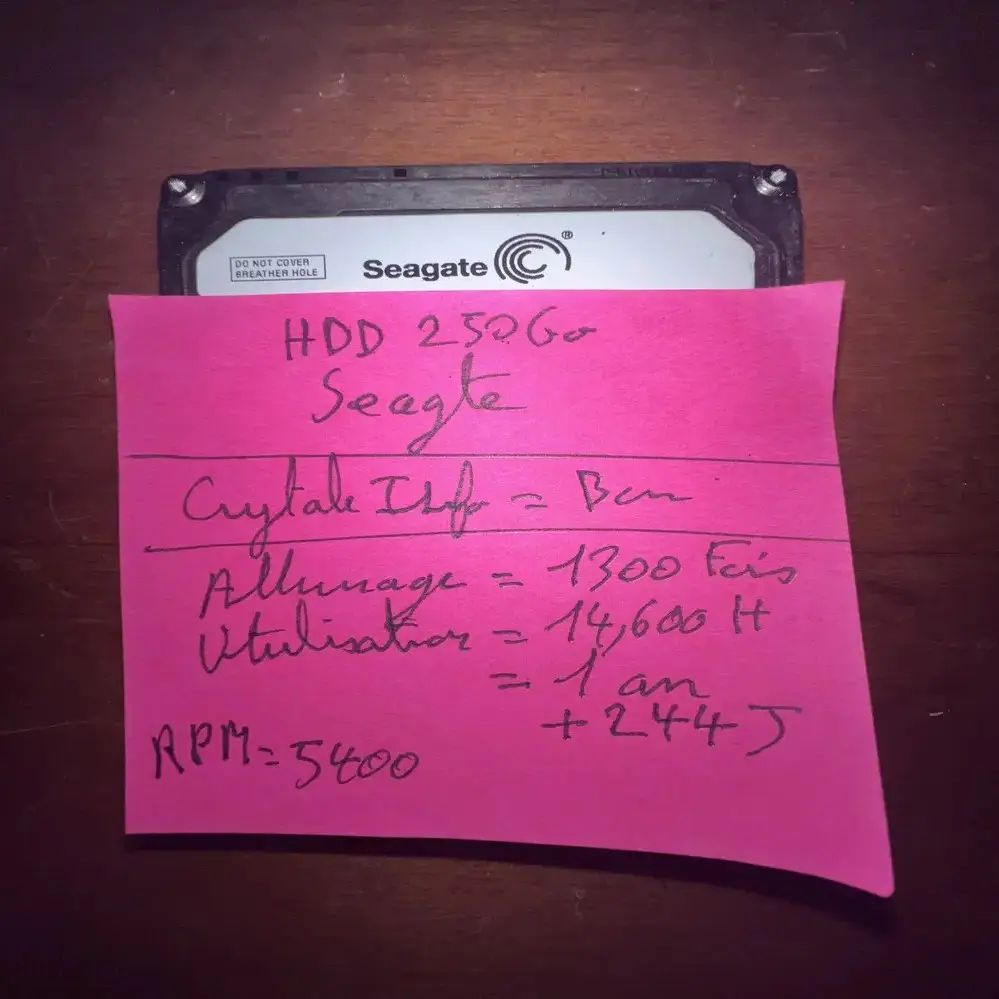 DO NOT COVER
BREATHER HOLE
Seagate ®
HDD 250Go
Seagte
Crytale Info = Bon
Allumage = 1300 Fois
Utulisation = 14,600 H
= 1 an
+ 244 J
RPM = 5400